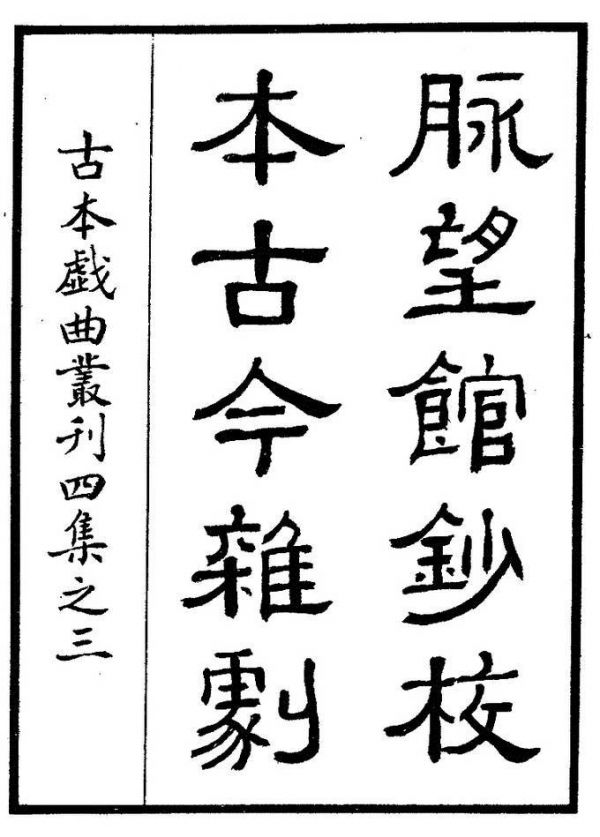 脉望館鈔校
本古今雜劇
古本戯曲叢刊四集之三